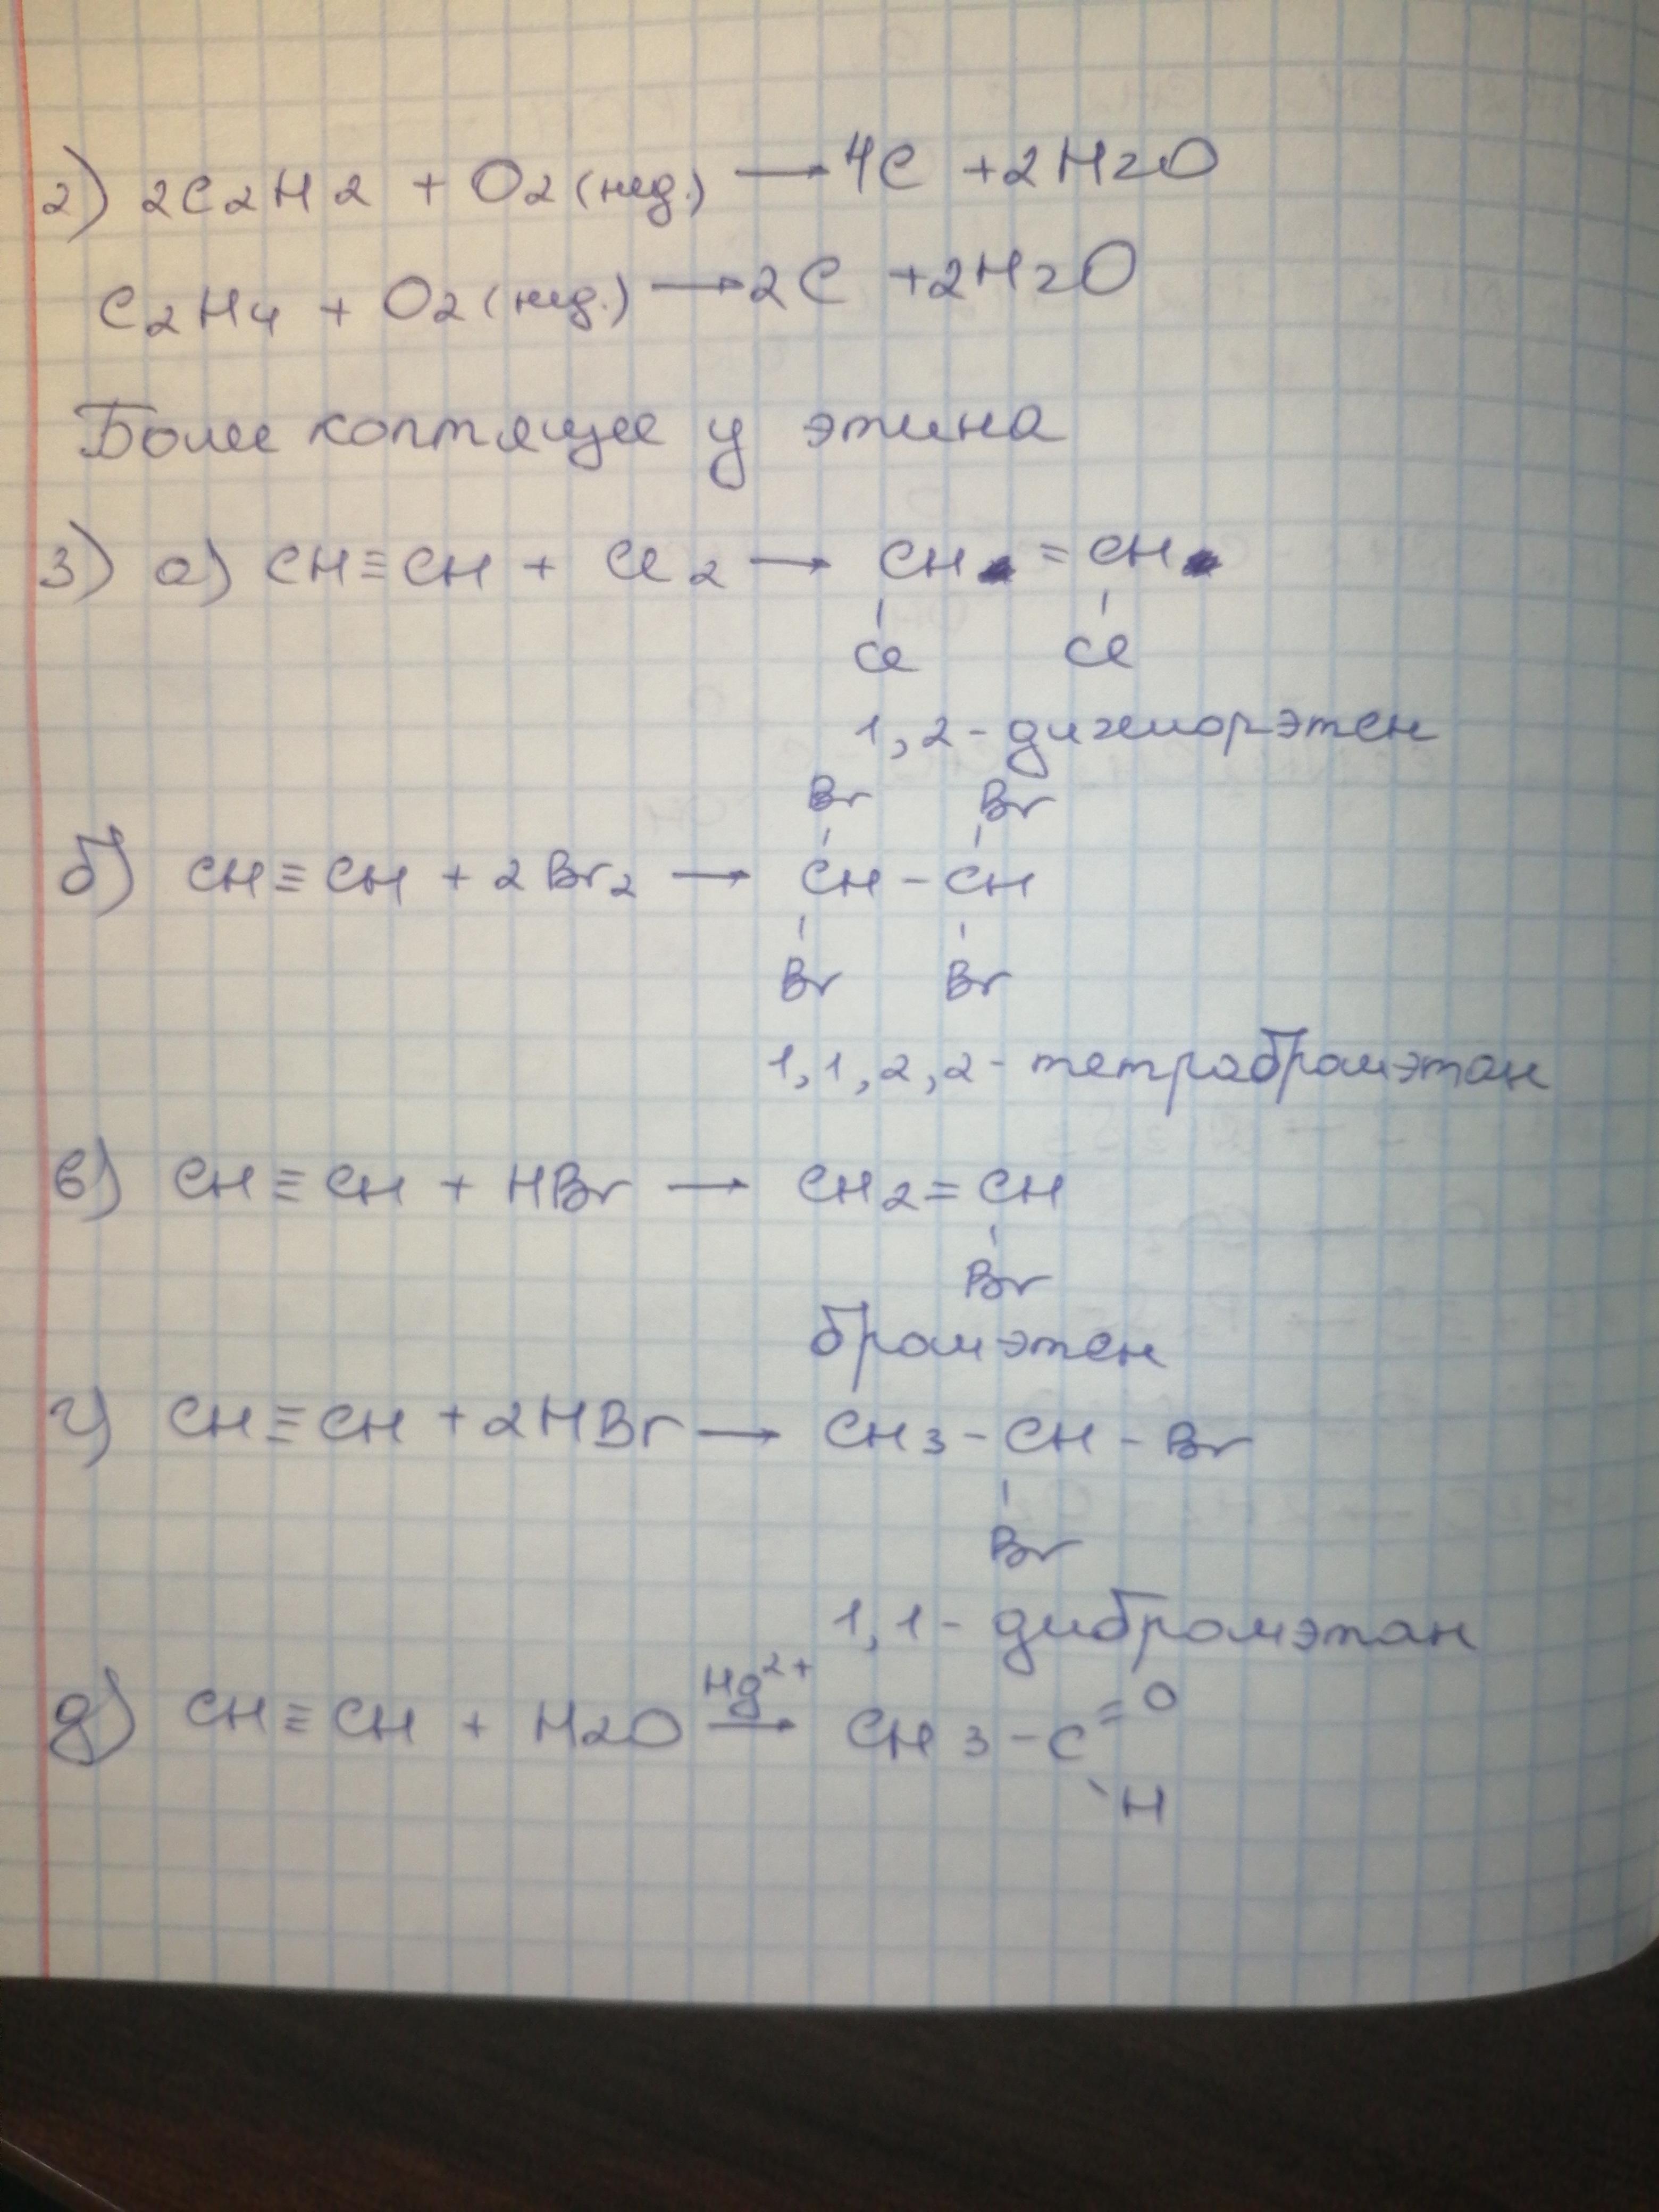 2) 2C2H2 + O2 (нед.) → 4C + 2H2O
C2H4 + O2 (нед.) → 2C + 2H2O
Более коптящее у этина
3) а) CH≡CH + Cl2 → CH = CH
Cl Cl
1,2-дихлорэтен
Br Br
б) CH≡CH + 2Br2 → CH - CH
Br Br
1,1,2,2-тетрабромэтан
в) CH≡CH + HBr → CH2=CH
Br
бромэтен
г) CH≡CH + 2HBr → CH3-CH-Br
Br
1,1-дибромэтан
д) CH≡CH + H2O Hg2+ → CH3-C=O
H